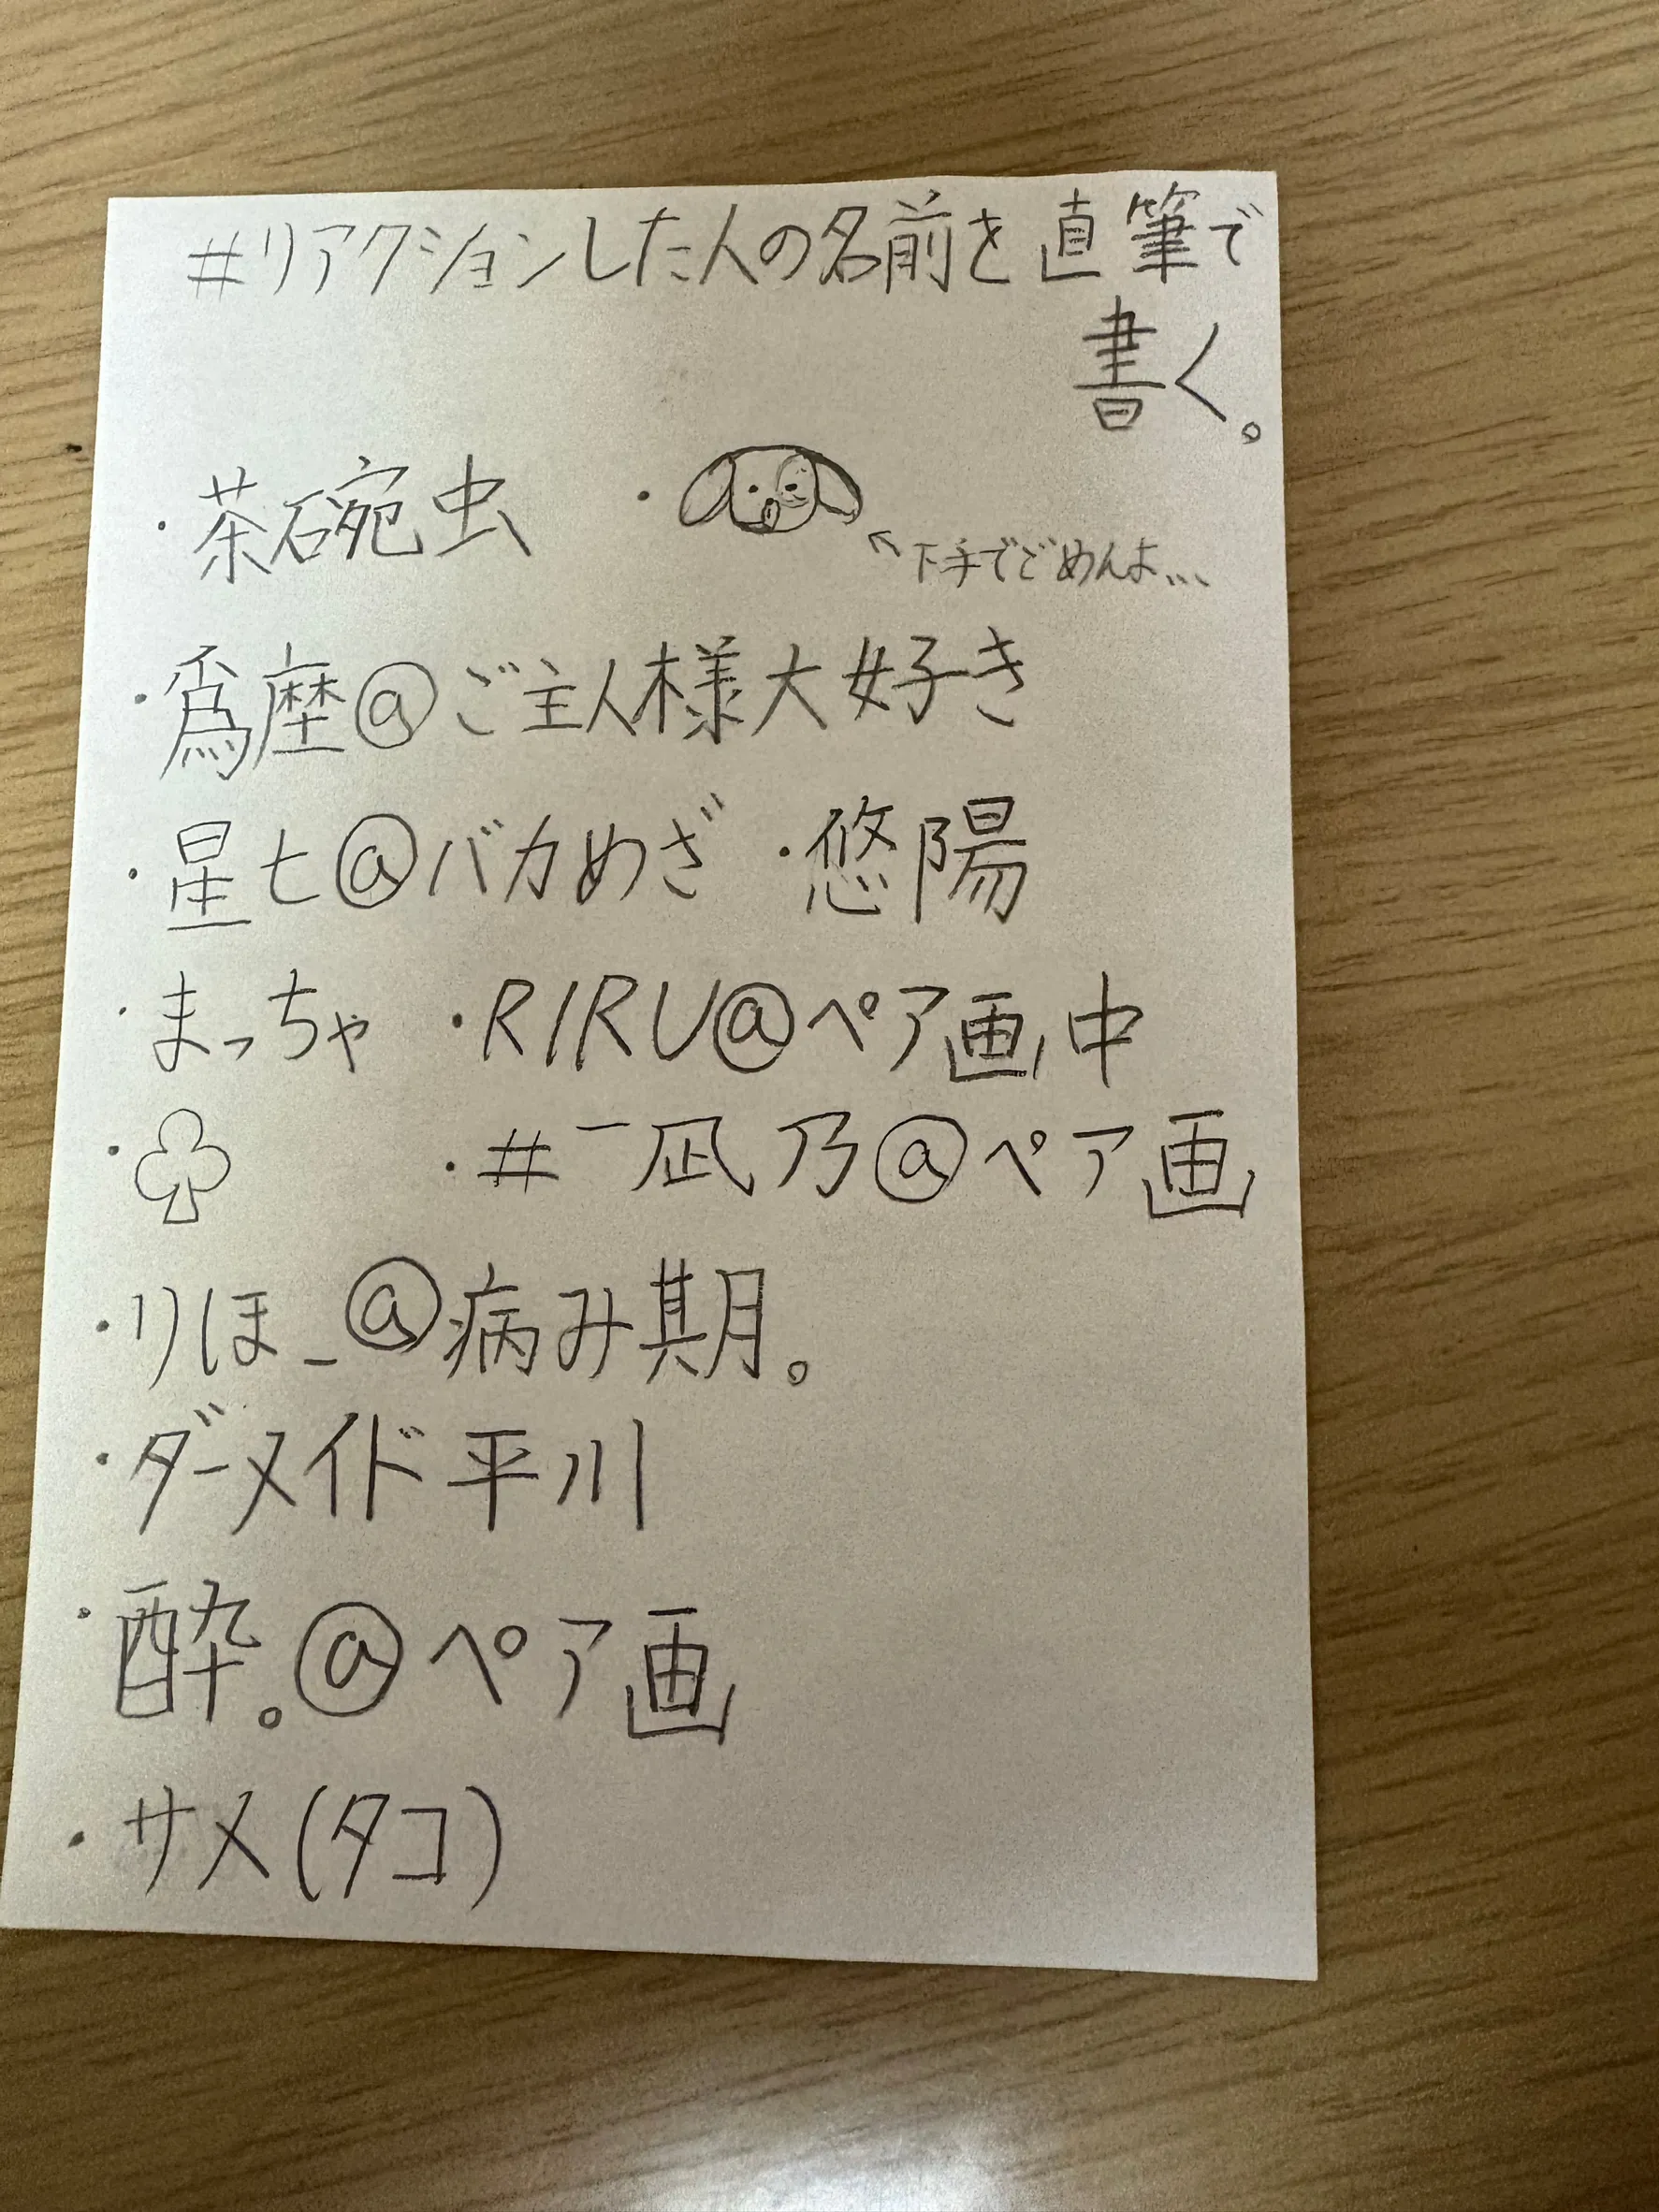 #リアクションした人の名前を直筆で
書く。
・茶碗虫 ・
↖下手でごめんよ、、、
・爲座@ご主人様大好き
・星七@バカめざ ・悠陽
・まっちゃ ・RIRU@ペア画中
・♧ ・#¯凪乃@ペア画
・りほ_@病み期。
・ダーメイド平川
・酔。@ペア画
・サメ(タコ)